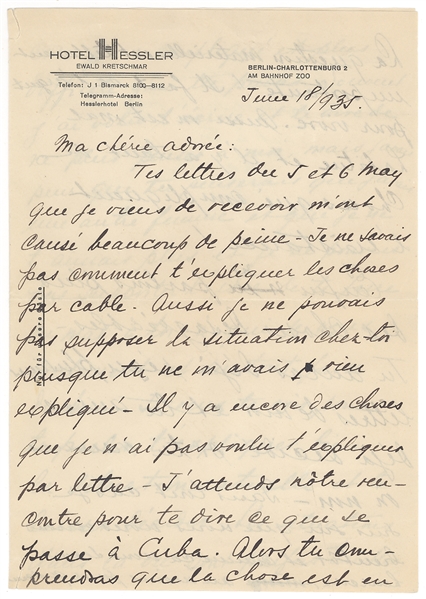 HOTEL HESSLER
EWALD KRETSCHMAR
Telefon: J 1 Bismarck 8100-8112
Telegramm-Adresse:
Hesslerhotel Berlin
BERLIN-CHARLOTTENBURG 2
AM BAHNHOF ZOO
June 18/935.
Ma chérie adorée:
Tes lettres du 5 et 6 May
que je viens de recevoir m'ont
causé beaucoup de peine - Je ne savais
pas comment t'expliquer les choses
par cable. Aussi je ne pouvais
pas supposer la situation chez toi
puisque tu ne m'avais rien
expliqué - Il y a encore des choses
que je n'ai pas voulu t'expliquer
par lettre - J'attends nôtre ren-
contre pour te dire ce que se
passe à Cuba. Alors tu com-
prendras que la chose est en